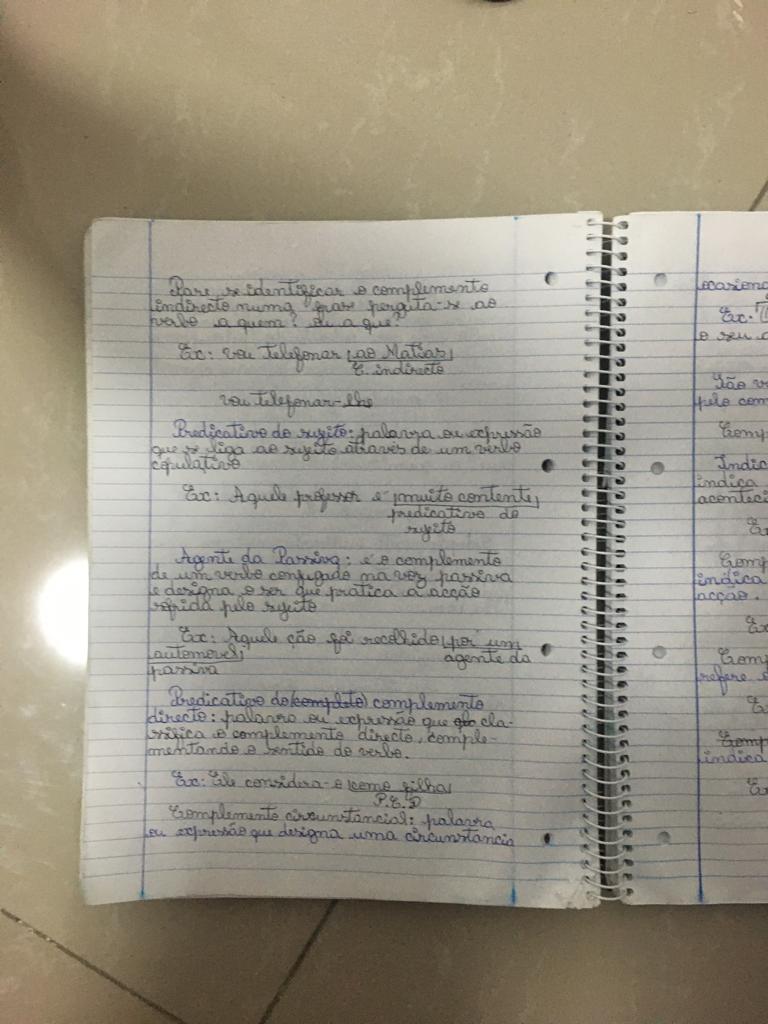 Para se identificar o complemento
indirecto numa frase pergūta-se ao
verbo a quem? ou a que?
Ex: Vou telefonar ao Matias
C. indirecto
Vou telefonar-lhe
Predicativo do sujeito: palavra ou expressão
que se liga ao sujeito através de um verbo
copulativo
Ex: Aquele professor é muito contente
predicativo do
sujeito
Agente da Passiva: é o complemento
de um verbo conjugado na voz passiva
e designa o ser que pratica a acção
sofrida pelo sujeito
Ex: Aquele cão foi recolhido por um
automovel agente da
passiva
Predicativo do (completo) complemento
directo: palavra ou expressão que cla-
ssifica o complemento directo, comple-
mentando o sentido do verbo.
Ex: Ele considera-o como filha
P.C.D
Complemento circunstancial: palavra
ou expressão que designa uma circunstancia
ocasiona
Ex.
o seu
São v
pelo com
Comp
Indic
indica
aconteci
Ex
Comp
indica
acção.
Ex
Comp
refere
Ex
Comp
indica
Ex